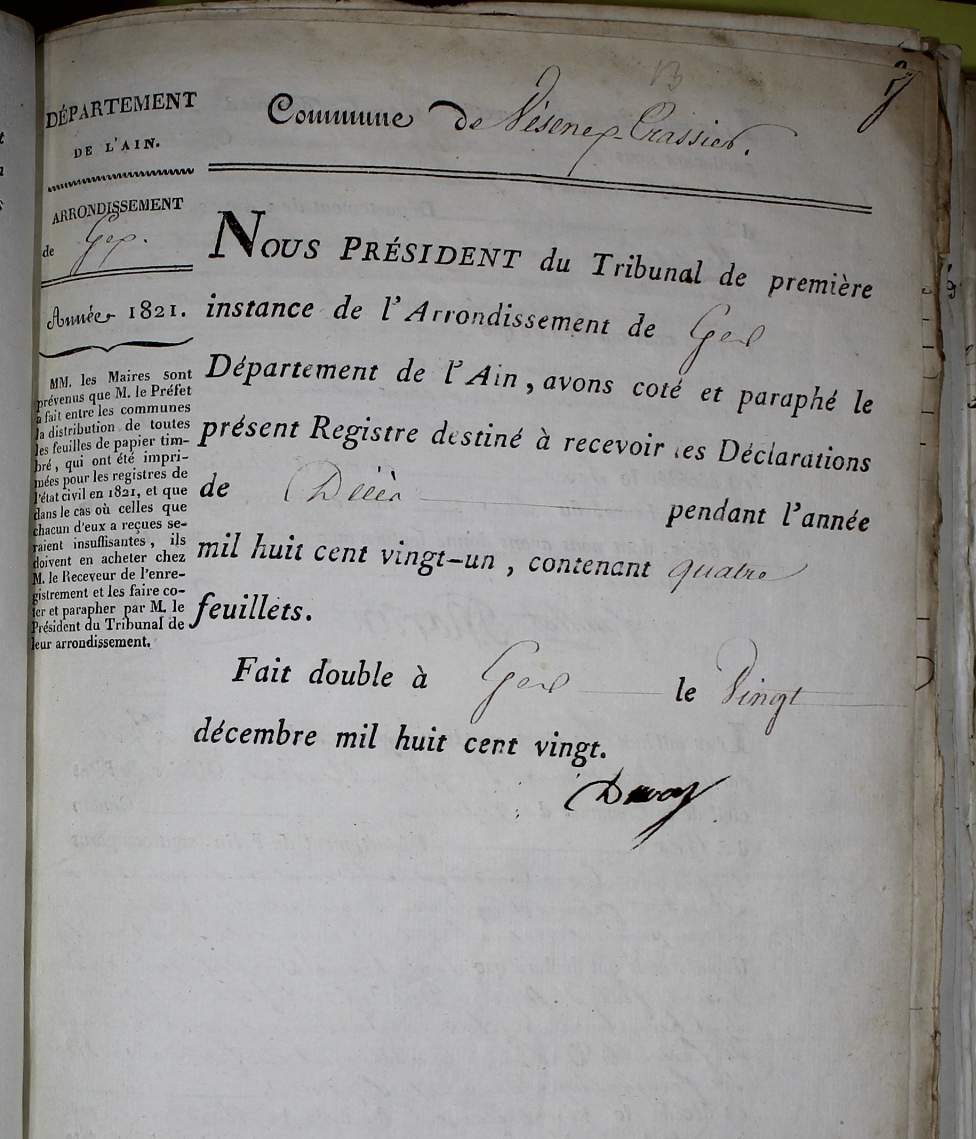 DÉPARTEMENT
DE L'AIN.
ARRONDISSEMENT
de Gex.
Année 1821.
MM. les Maires sont
prévenus que M. le Préfet
a fait entre les communes
la distribution de toutes
les feuilles de papier tim-
bré, qui ont été impri-
mées pour les registres de
l'état civil en 1821, et que
dans le cas où celles que
chacun d'eux a reçues se-
raient insuffisantes, ils
doivent en acheter chez
M. le Receveur de l'enre-
gistrement et les faire co-
ter et parapher par M. le
Président du Tribunal de
leur arrondissement.
Commune de Vésenex-Crassier.
NOUS PRÉSIDENT du Tribunal de première
instance de l'Arrondissement de Gex
Département de l'Ain, avons coté et paraphé le
présent Registre destiné à recevoir les Déclarations
de Décès pendant l'année
mil huit cent vingt-un, contenant quatre
feuillets.
Fait double à Gex le Vingt
décembre mil huit cent vingt.